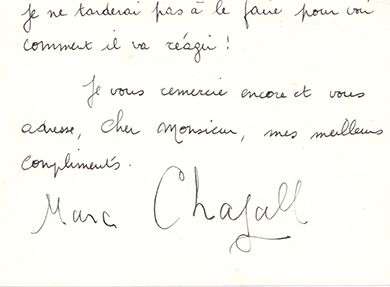 je ne tarderai pas à le faire pour voir
comment il va réagir !
Je vous remercie encore et vous
adresse, Cher Monsieur, mes meilleurs
compliments.
Marc Chagall